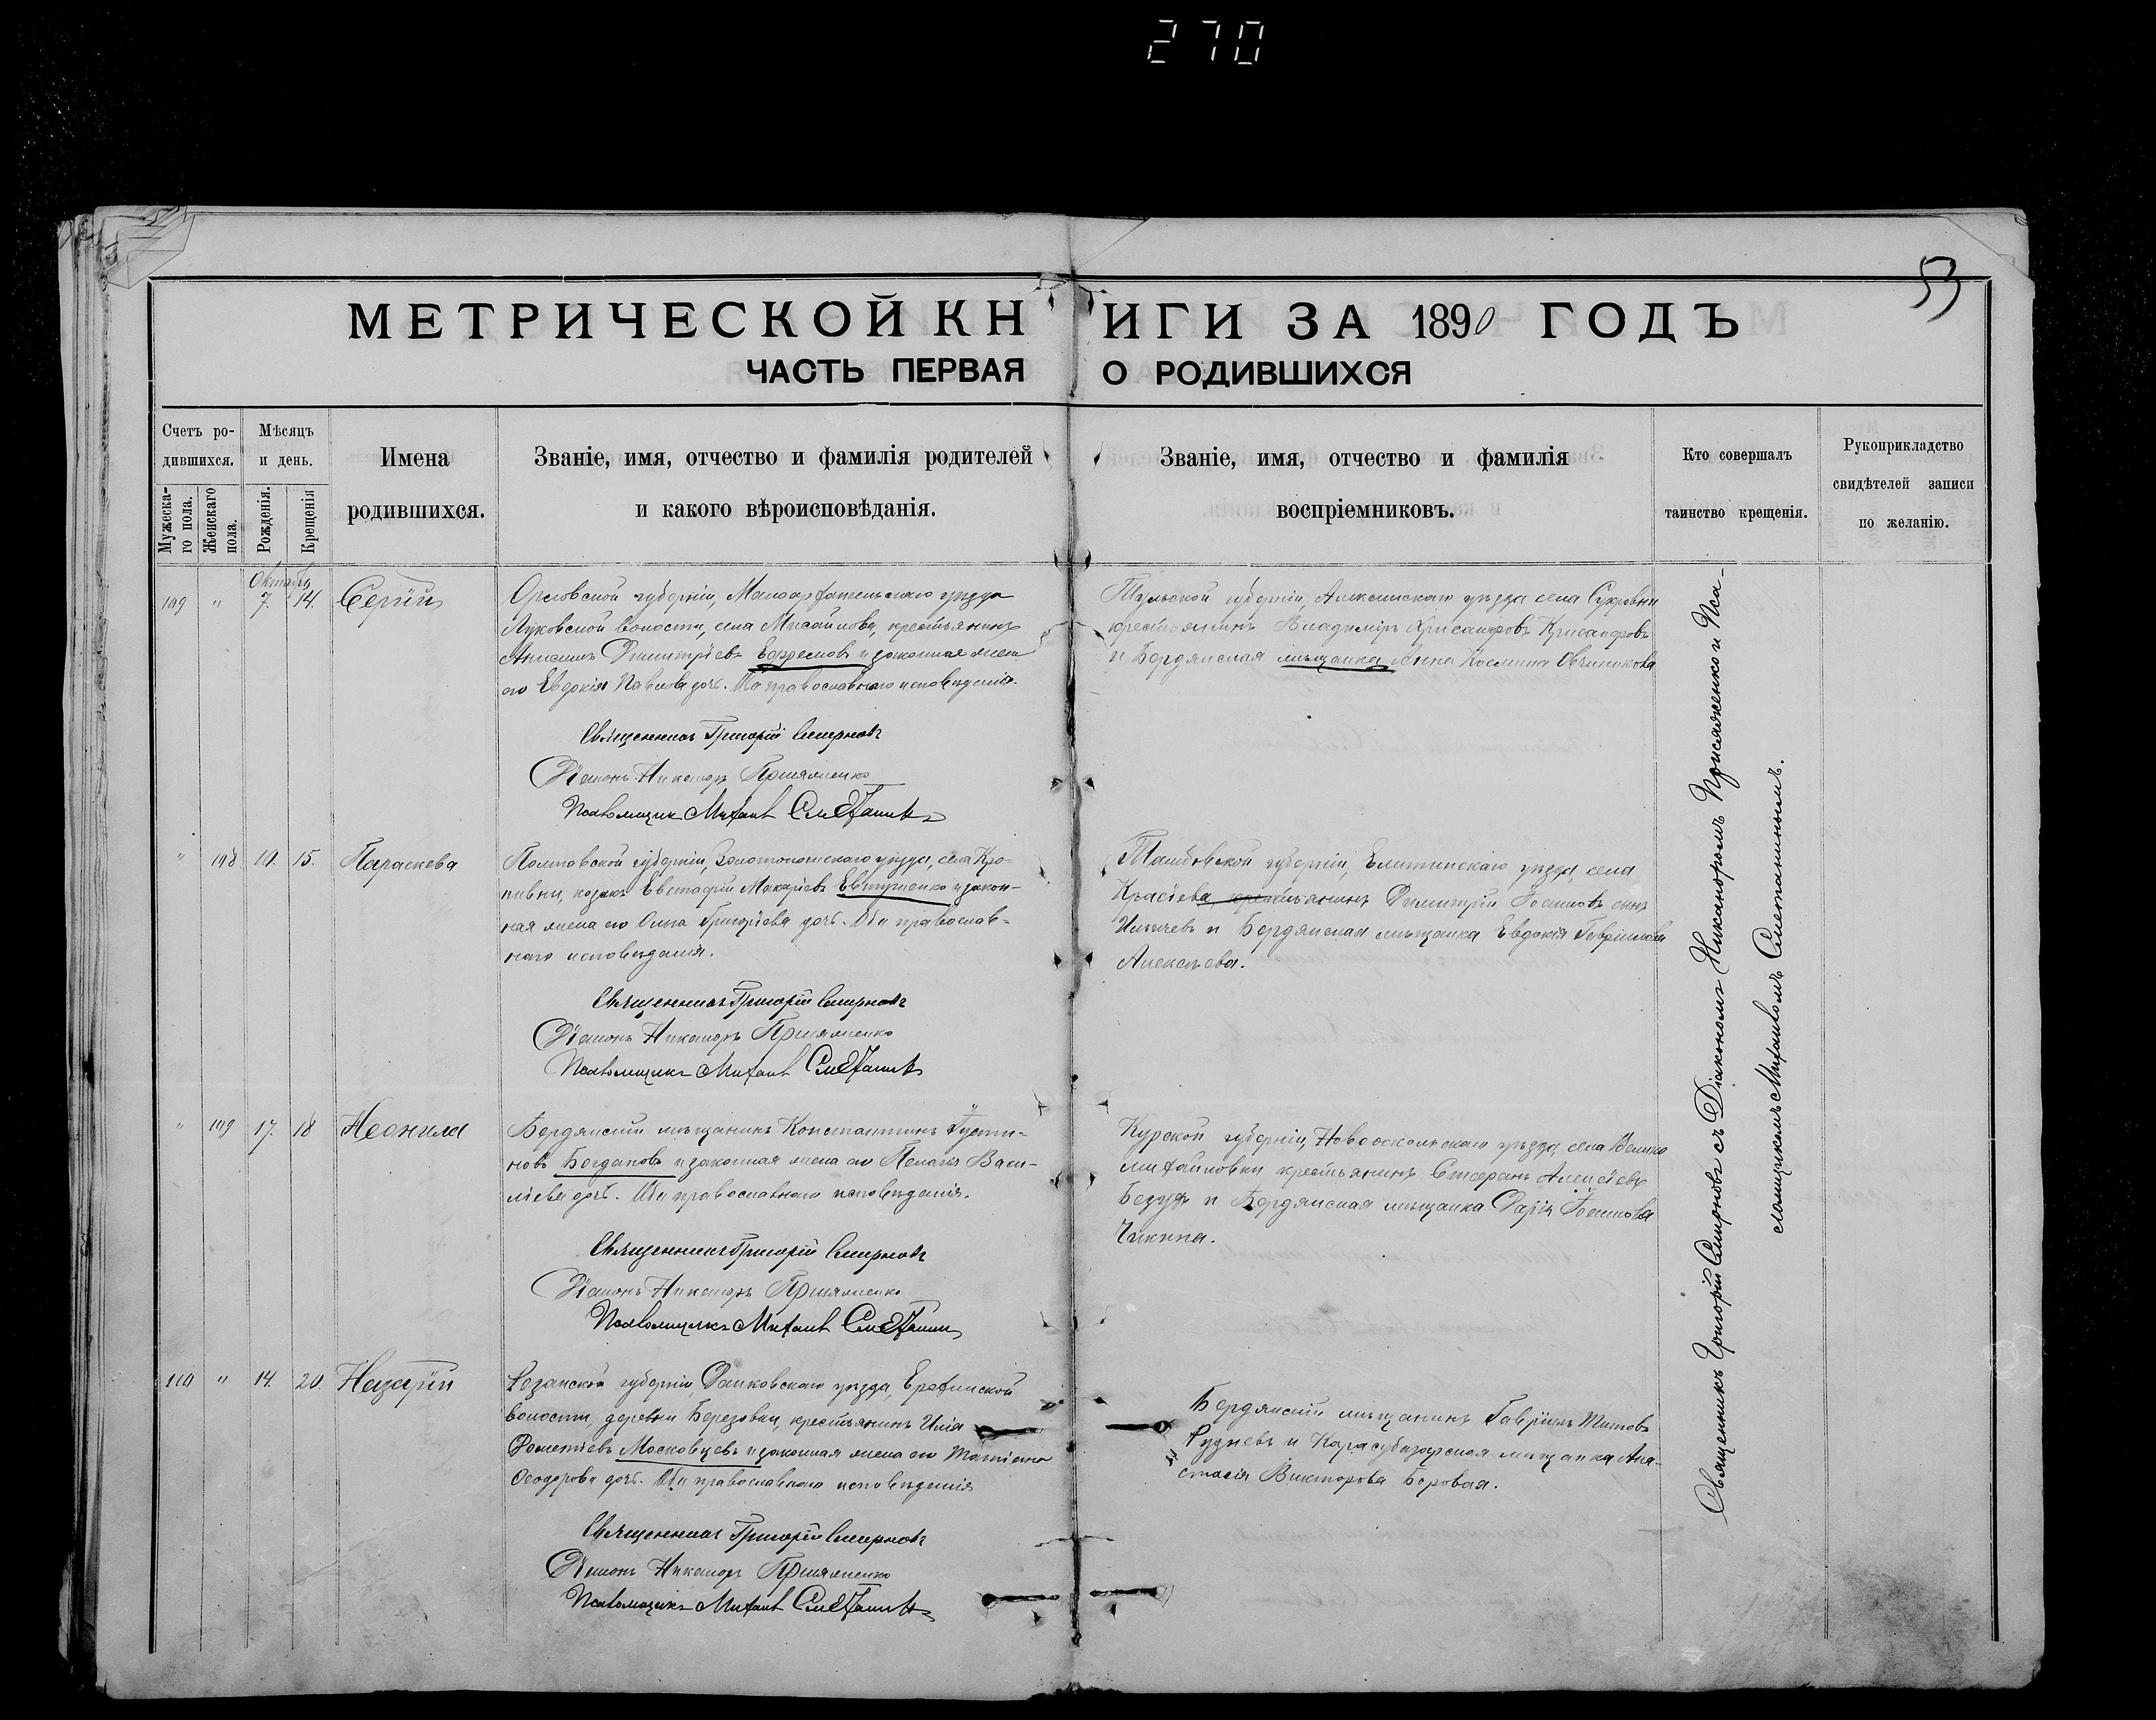 270
53
МЕТРИЧЕСКОЙ КНИГИ ЗА 1890 ГОДЪ
ЧАСТЬ ПЕРВАЯ О РОДИВШИХСЯ
Счетъ ро-
дившихся.
Мужеска-
го пола.
Женскаго
пола.
Мѣсяцъ
и день.
Рожденія.
Крещенія
Имена
родившихся.
Званіе, имя, отчество и фамилія родителей
и какого вѣроисповѣданія.
Званіе, имя, отчество и фамилія
воспріемниковъ.
Кто совершалъ
таинство крещенія.
Рукоприкладство
свидѣтелей записи
по желанію.
Октябрь
109 " 7. 14. Сергій
Орловской губерніи, Малоархангельскаго уѣзда
Луковской волости, села Мисайлова, крестьянинъ
Анисимъ Димитріевъ Ефремовъ и законная жена
его Евдокія Павлова дочь. Оба православнаго исповѣданія.
Священникъ Григорій Смирновъ
Діаконъ Никаноръ Присяженко
Псаломщикъ Михаилъ Сметанинъ
Тульской губерніи, Алексинскаго уѣзда села
крестьянинъ Владиміръ Хрисанфовъ
и Бердянская мѣщанка Анна Космина Овчинникова
" 108 10. 15. Параскева
Полтавской губерніи, Золотоношскаго уѣзда, села Кро-
пивны, козакъ Евстафій Макаріевъ Евтушенко и закон-
ная жена его Ольга Григоріева дочь. Оба православ-
наго исповѣданія.
Священникъ Григорій Смирновъ
Діаконъ Никаноръ Присяженко
Псаломщикъ Михаилъ Сметанинъ
Тамбовской губерніи, Елатминскаго уѣзда, села
крестьянинъ Димитрій Іоанновъ сынъ
и Бердянская мѣщанка Евдокія Гавріилова
Алексѣева.
" 109 17. 18 Неонила
Бердянскій мѣщанинъ Константинъ Іусти-
новъ Богдановъ и законная жена его Пелагія Васи-
ліева дочь. Оба православнаго исповѣданія.
Священникъ Григорій Смирновъ
Діаконъ Никаноръ Присяженко
Псаломщикъ Михаилъ Сметанинъ
Курской губерніи, Новооскольскаго уѣзда, села Велико
михайловки крестьянинъ Стефанъ Алексіевъ
и Бердянская мѣщанка Дарія Іоаннова
Чикина.
110 " 14. 20. Назарій
Рязанской губерніи, Данковскаго уѣзда,
волости, деревни Березовки, крестьянинъ Илія
Дометіевъ Московцевъ и законная жена его
Ѳеодорова дочь. Оба православнаго исповѣданія
Священникъ Григорій Смирновъ
Діаконъ Никаноръ Присяженко
Псаломщикъ Михаилъ Сметанинъ
Бердянскій мѣщанинъ Гавріилъ Титовъ
Рудневъ и Карасубазарская мѣщанка Ана-
стасія Викторова Боровая.
Священникъ Григорій Смирновъ съ Діакономъ Никаноромъ Присяженко и Пса-
ломщикомъ Михаиломъ Сметанинымъ.